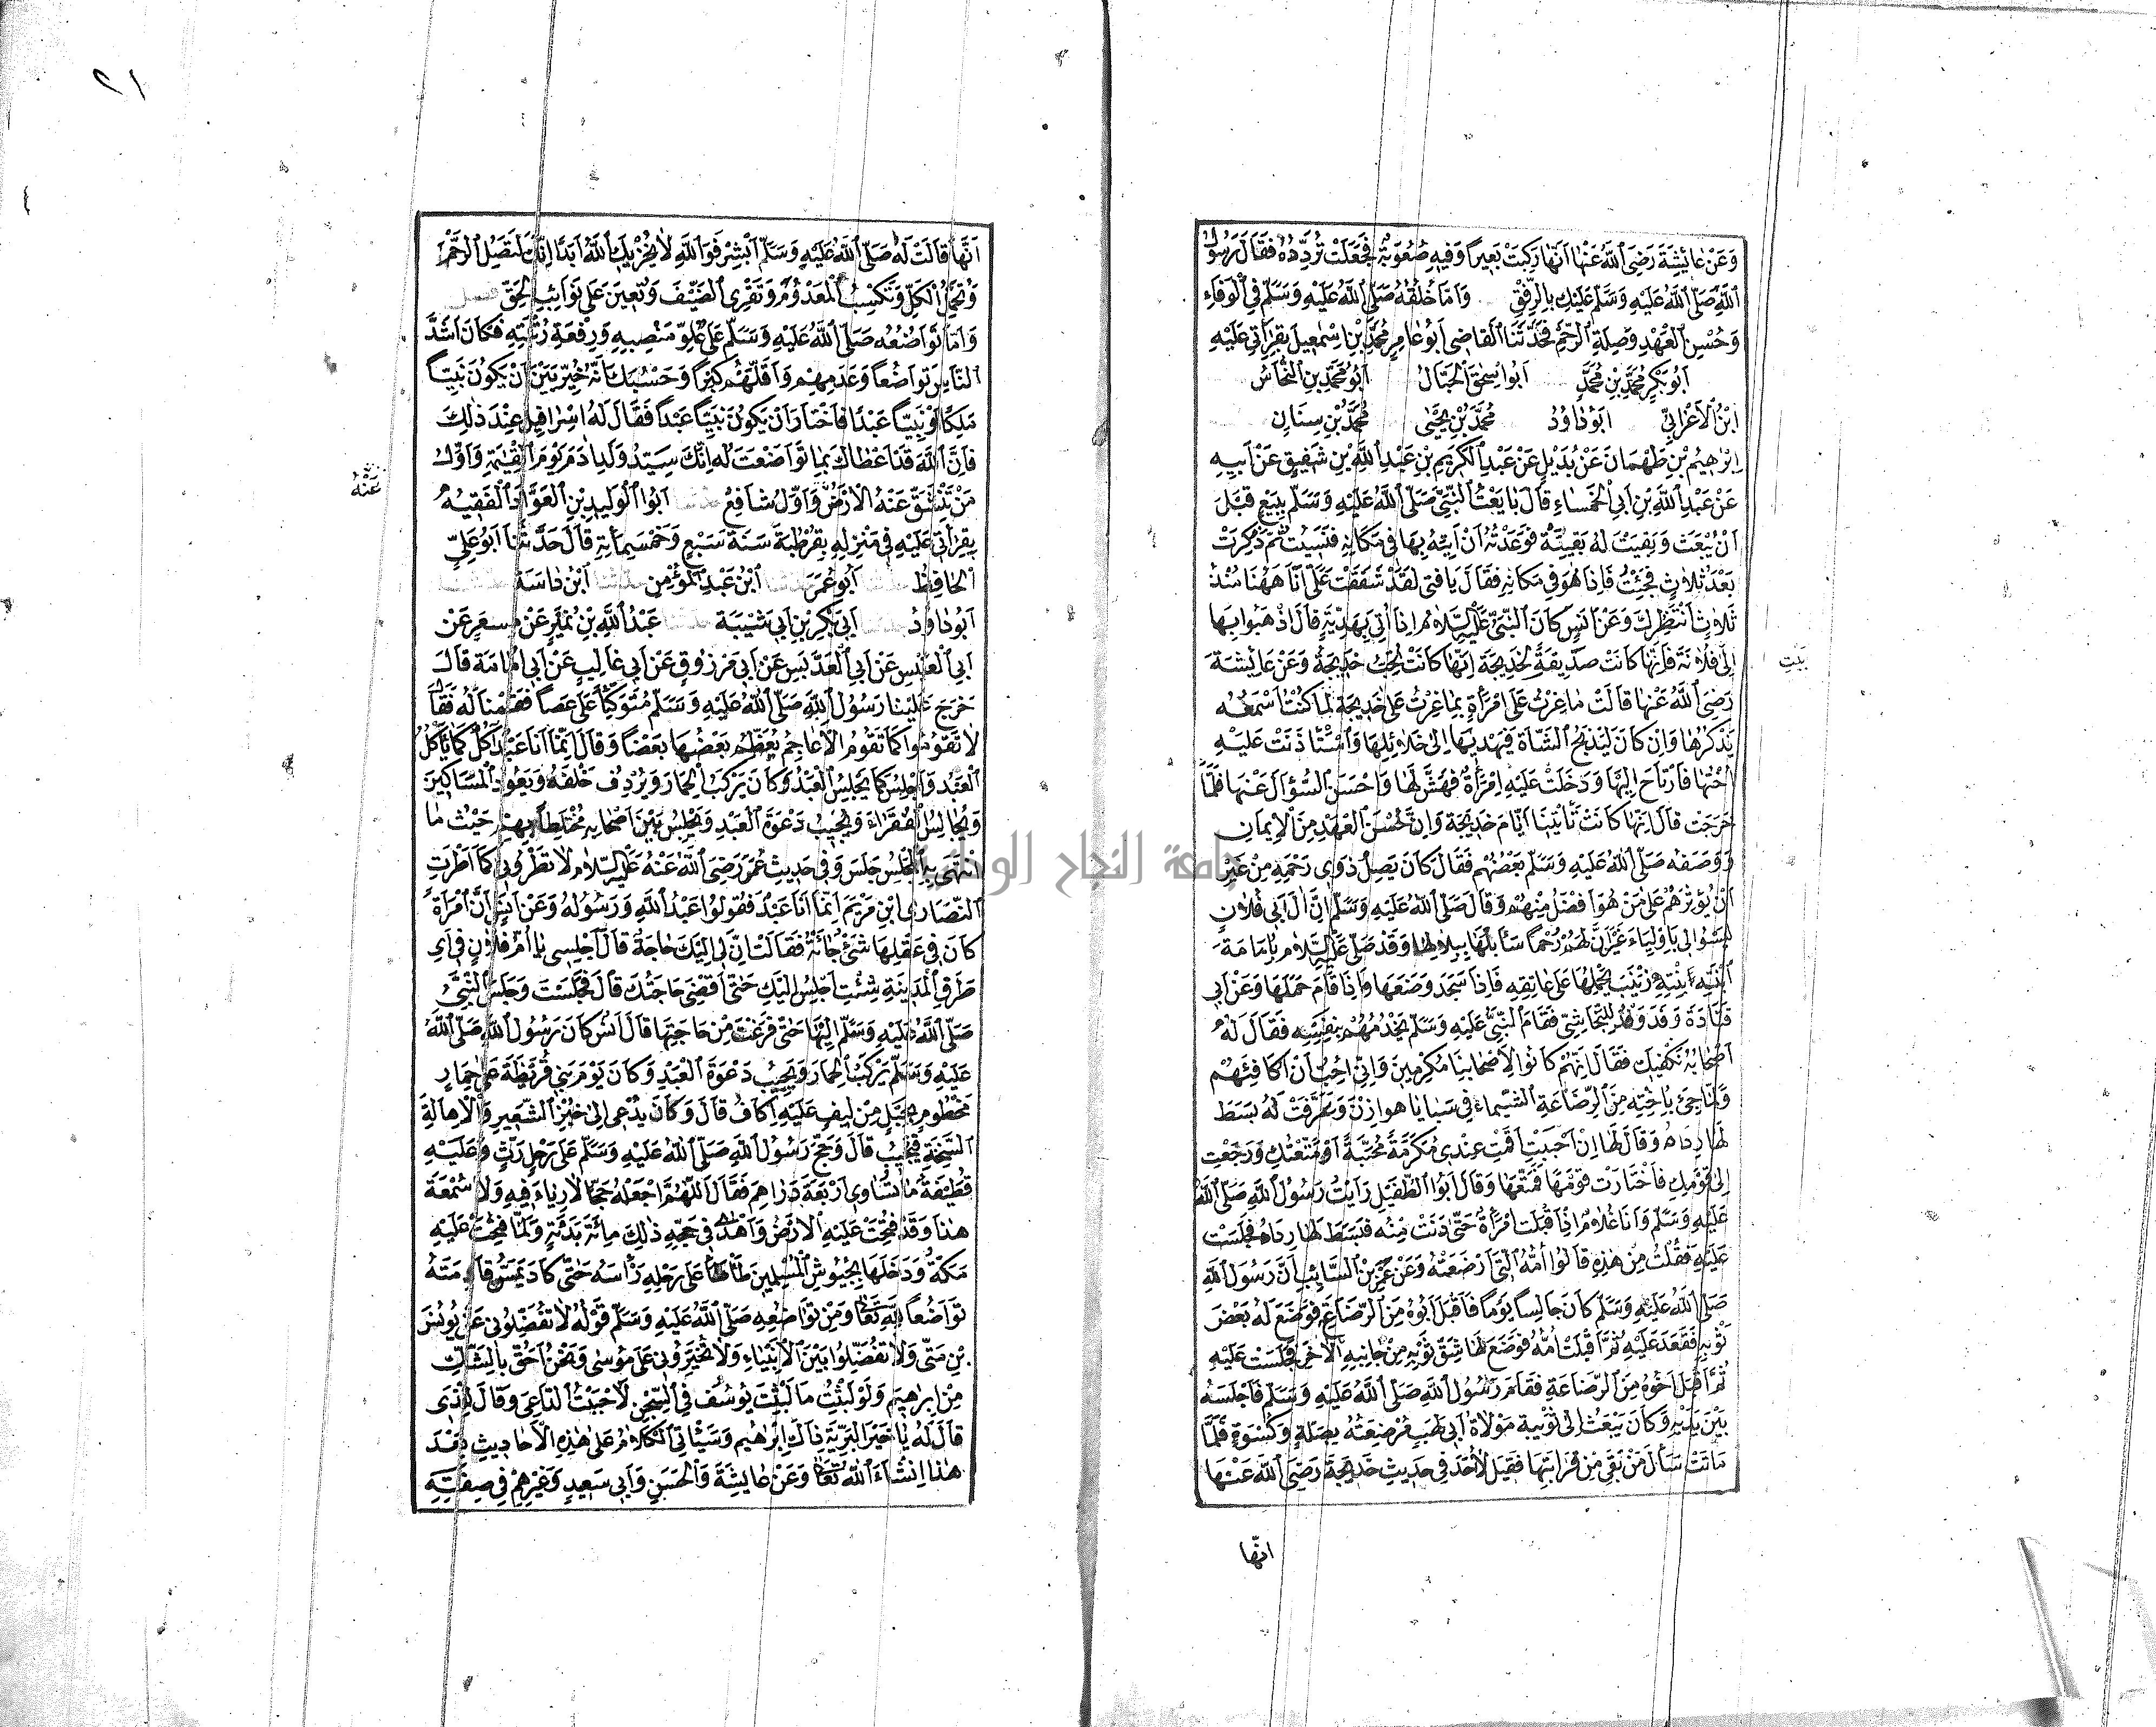 وَعَنْ عَائِشَةَ رَضِيَ اللهُ عَنْهَا اَنَّهَا رَكِبَتْ بَعِيراً وَفِيهِ صُعُوبَةٌ فَجَعَلَتْ تُرَدِّدُهُ فَقَالَ رَسُولُ
اللهِ صَلَّى اللهُ عَلَيْهِ وَسَلَّمَ عَلَيْكِ بِالرِّفْقِ وَاَمَّا خُلُقُهُ صَلَّى اللهُ عَلَيْهِ وَسَلَّمَ فِي الْوَفَاءِ
وَحُسْنِ الْعَهْدِ وَصِلَةِ الرَّحِمِ فَحَدَّثَنَا الْقَاضِي اَبُو عَامِرٍ مُحَمَّدُ بْنُ اِسْمٰعِيلَ بِقِرَاءَتِي عَلَيْهِ
اَبُو بَكْرٍ مُحَمَّدُ بْنُ مُحَمَّدٍ اَبُو اِسْحٰقَ الْحَبَّالُ اَبُو مُحَمَّدِ بْنُ النَّحَّاسِ
ابْنُ الْاَعْرَابِيِّ اَبُو دَاوُدَ مُحَمَّدُ بْنُ يَحْيَى مُحَمَّدُ بْنُ سِنَانٍ
اِبْرٰهِيمُ بْنُ طَهْمَانَ عَنْ بُدَيْلٍ عَنْ عَبْدِ الْكَرِيمِ بْنِ عَبْدِ اللهِ بْنِ شَقِيقٍ عَنْ اَبِيهِ
عَنْ عَبْدِ اللهِ بْنِ اَبِي الْحَمْسَاءِ قَالَ بَايَعْتُ النَّبِيَّ صَلَّى اللهُ عَلَيْهِ وَسَلَّمَ بِبَيْعٍ قَبْلَ
اَنْ يُبْعَثَ وَبَقِيَتْ لَهُ بَقِيَّةٌ فَوَعَدْتُهُ اَنْ اٰتِيَهُ بِهَا فِي مَكَانِهِ فَنَسِيتُ ثُمَّ ذَكَرْتُ
بَعْدَ ثَلَاثٍ فَجِئْتُ فَاِذَا هُوَ فِي مَكَانِهِ فَقَالَ يَا فَتَى لَقَدْ شَقَقْتَ عَلَيَّ اَنَا هٰهُنَا مُنْذُ
ثَلَاثٍ اَنْتَظِرُكَ وَعَنْ اَنَسٍ كَانَ النَّبِيُّ عَلَيْهِ السَّلَامُ اِذَا اُتِيَ بِهَدِيَّةٍ قَالَ اذْهَبُوا بِهَا
اِلَى فُلَانَةَ فَاِنَّهَا كَانَتْ صَدِيقَةً لِخَدِيجَةَ اِنَّهَا كَانَتْ تُحِبُّ خَدِيجَةَ وَعَنْ عَائِشَةَ
بَيْتِ
رَضِيَ اللهُ عَنْهَا قَالَتْ مَا غِرْتُ عَلَى امْرَأَةٍ مَا غِرْتُ عَلَى خَدِيجَةَ لِمَا كُنْتُ اَسْمَعُهُ
يَذْكُرُهَا وَاِنْ كَانَ لَيَذْبَحُ الشَّاةَ فَيُهْدِيهَا اِلَى خَلَائِلِهَا وَاسْتَأْذَنَتْ عَلَيْهِ
اُخْتُهَا فَارْتَاحَ اِلَيْهَا وَدَخَلَتْ عَلَيْهِ امْرَأَةٌ فَهَشَّ لَهَا وَاَحْسَنَ السُّؤَالَ عَنْهَا فَلَمَّا
خَرَجَتْ قَالَ اِنَّهَا كَانَتْ تَأْتِينَا اَيَّامَ خَدِيجَةَ وَاِنَّ حُسْنَ الْعَهْدِ مِنَ الْاِيمَانِ
وَوَصَفَهُ صَلَّى اللهُ عَلَيْهِ وَسَلَّمَ بَعْضُهُمْ فَقَالَ كَانَ يَصِلُ ذَوِي رَحِمِهِ مِنْ غَيْرِ
اَنْ يُؤْثِرَهُمْ عَلَى مَنْ هُوَ اَفْضَلُ مِنْهُمْ وَقَالَ صَلَّى اللهُ عَلَيْهِ وَسَلَّمَ اِنَّ اٰلَ اَبِي فُلَانٍ
لَيْسُوا لِي بِاَوْلِيَاءَ غَيْرَ اَنَّ لَهُمْ رَحِماً سَاَبُلُّهَا بِبِلَالِهَا وَقَدْ صَلَّى عَلَيْهِ السَّلَامُ بِاُمَامَةَ
ابْنَةِ ابْنَتِهِ زَيْنَبَ يَحْمِلُهَا عَلَى عَاتِقِهِ فَاِذَا سَجَدَ وَضَعَهَا وَاِذَا قَامَ حَمَلَهَا وَعَنْ اَبِي
قَتَادَةَ وَفَدَ وَفْدٌ لِلنَّجَاشِيِّ فَقَامَ النَّبِيُّ عَلَيْهِ وَسَلَّمَ يَخْدُمُهُمْ بِنَفْسِهِ فَقَالَ لَهُ
اَصْحَابُهُ نَكْفِيكَ فَقَالَ اِنَّهُمْ كَانُوا لِاَصْحَابِنَا مُكْرِمِينَ وَاِنِّي اُحِبُّ اَنْ اُكَافِئَهُمْ
وَلَمَّا جِيءَ بِاُخْتِهِ مِنَ الرَّضَاعَةِ الشَّيْمَاءِ فِي سَبَايَا هَوَازِنَ وَتَعَرَّفَتْ لَهُ بَسَطَ
لَهَا رِدَاءَهُ وَقَالَ لَهَا اِنْ اَحْبَبْتِ اَقَمْتِ عِنْدِي مُكَرَّمَةً مُحَبَّبَةً اَوْ مَتَّعْتُكِ وَرَجَعْتِ
اِلَى قَوْمِكِ فَاخْتَارَتْ قَوْمَهَا فَمَتَّعَهَا وَقَالَ اَبُو الطُّفَيْلِ رَاَيْتُ رَسُولَ اللهِ صَلَّى اللهُ
عَلَيْهِ وَسَلَّمَ وَاَنَا غُلَامٌ اِذْ اَقْبَلَتْ امْرَأَةٌ حَتَّى دَنَتْ مِنْهُ فَبَسَطَ لَهَا رِدَاءَهُ فَجَلَسَتْ
عَلَيْهِ فَقُلْتُ مَنْ هٰذِهِ قَالُوا اُمُّهُ الَّتِي اَرْضَعَتْهُ وَعَنْ عُمَرَ بْنِ السَّائِبِ اَنَّ رَسُولَ اللهِ
صَلَّى اللهُ عَلَيْهِ وَسَلَّمَ كَانَ جَالِساً يَوْماً فَاَقْبَلَ اَبُوهُ مِنَ الرَّضَاعَةِ فَوَضَعَ لَهُ بَعْضَ
ثَوْبِهِ فَقَعَدَ عَلَيْهِ ثُمَّ اَقْبَلَتْ اُمُّهُ فَوَضَعَ لَهَا شِقَّ ثَوْبِهِ مِنْ جَانِبِهِ الْاٰخَرِ فَجَلَسَتْ عَلَيْهِ
ثُمَّ اَقْبَلَ اَخُوهُ مِنَ الرَّضَاعَةِ فَقَامَ رَسُولُ اللهِ صَلَّى اللهُ عَلَيْهِ وَسَلَّمَ فَاَجْلَسَهُ
بَيْنَ يَدَيْهِ وَكَانَ يَبْعَثُ اِلَى ثُوَيْبَةَ مَوْلَاةِ اَبِي لَهَبٍ مُرْضِعَتِهُ بِصِلَةٍ وَكِسْوَةٍ فَلَمَّا
مَاتَتْ سَاَلَ مَنْ بَقِيَ مِنْ قَرَابَتِهَا فَقِيلَ لَا اَحَدَ فِي حَدِيثِ خَدِيجَةَ رَضِيَ اللهُ عَنْهَا
انّها
٢١
اَنَّهَا قَالَتْ لَهُ صَلَّى اللهُ عَلَيْهِ وَسَلَّمَ اَبْشِرْ فَوَاللهِ لَا يُخْزِيكَ اللهُ اَبَداً اِنَّكَ لَتَصِلُ الرَّحِمَ
وَتَحْمِلُ الْكَلَّ وَتَكْسِبُ الْمَعْدُومَ وَتَقْرِي الضَّيْفَ وَتُعِينُ عَلَى نَوَائِبِ الْحَقِّ فصل
وَاَمَّا تَوَاضُعُهُ صَلَّى اللهُ عَلَيْهِ وَسَلَّمَ عَلَى عُلُوِّ مَنْصِبِهِ وَرِفْعَةِ رُتْبَتِهِ فَكَانَ اَشَدَّ
النَّاسِ تَوَاضُعاً وَعَدَمِهِمْ وَاَقَلَّهُمْ كِبْراً وَحَسْبُكَ اَنَّهُ خُيِّرَ بَيْنَ اَنْ يَكُونَ نَبِيّاً
مَلِكاً اَوْ نَبِيّاً عَبْداً فَاخْتَارَ اَنْ يَكُونَ نَبِيّاً عَبْداً فَقَالَ لَهُ اِسْرَافِيلُ عِنْدَ ذٰلِكَ
فَاِنَّ اللهَ قَدْ اَعْطَاكَ بِمَا تَوَاضَعْتَ لَهُ اِنَّكَ سَيِّدُ وَلَدِ اٰدَمَ يَوْمَ الْقِيٰمَةِ وَاَوَّلُ
عَنْهُ
مَنْ تَنْشَقُّ عَنْهُ الْاَرْضُ وَاَوَّلُ شَافِعٍ اَبُو الْوَلِيدِ بْنُ الْعَوَّادِ الْفَقِيهُ
بِقِرَاءَتِي عَلَيْهِ فِي مَنْزِلِهِ بِقُرْطُبَةَ سَنَةَ سَبْعٍ وَخَمْسِمِائَةٍ قَالَ حَدَّثَنَا اَبُو عَلِيٍّ
الْحَافِظُ اَبُو عُمَرَ ابْنُ عَبْدِ الْمُؤْمِنِ ابْنُ دَاسَةَ
اَبُو دَاوُدَ اَبِي بَكْرِ بْنُ اَبِي شَيْبَةَ عَبْدُ اللهِ بْنُ نُمَيْرٍ عَنْ مِسْعَرٍ عَنْ
اَبِي الْعَنْبَسِ عَنْ اَبِي الْعَدَبَّسِ عَنْ اَبِي مَرْزُوقٍ عَنْ اَبِي غَالِبٍ عَنْ اَبِي اُمَامَةَ قَالَ
خَرَجَ عَلَيْنَا رَسُولُ اللهِ صَلَّى اللهُ عَلَيْهِ وَسَلَّمَ مُتَوَكِّئاً عَلَى عَصاً فَقُمْنَا لَهُ فَقَالَ
لَا تَقُومُوا كَمَا تَقُومُ الْاَعَاجِمُ يُعَظِّمُ بَعْضُهَا بَعْضاً وَقَالَ اِنَّمَا اَنَا عَبْدٌ اٰكُلُ كَمَا يَأْكُلُ
الْعَبْدُ وَاَجْلِسُ كَمَا يَجْلِسُ الْعَبْدُ وَكَانَ يَرْكَبُ الْحِمَارَ وَيُرْدِفُ خَلْفَهُ وَيَعُودُ الْمَسَاكِينَ
وَيُجَالِسُ الْفُقَرَاءَ وَيُجِيبُ دَعْوَةَ الْعَبْدِ وَيَجْلِسُ بَيْنَ اَصْحَابِهِ مُخْتَلِطاً بِهِمْ حَيْثُ مَا
انْتَهَى بِهِ الْمَجْلِسُ جَلَسَ وَفِي حَدِيثِ عُمَرَ رَضِيَ اللهُ عَنْهُ عَلَيْهِ السَّلَامُ لَا تُطْرُونِي كَمَا اَطْرَتِ
النَّصَارَى ابْنَ مَرْيَمَ اِنَّمَا اَنَا عَبْدٌ فَقُولُوا عَبْدُ اللهِ وَرَسُولُهُ وَعَنْ اَنَسٍ اَنَّ امْرَأَةً
كَانَ فِي عَقْلِهَا شَيْءٌ جَائَتْهُ فَقَالَتْ اِنَّ لِي اِلَيْكَ حَاجَةً قَالَ اجْلِسِي يَا اُمَّ فُلَانٍ فِي اَيِّ
طُرُقِ الْمَدِينَةِ شِئْتِ اَجْلِسُ اِلَيْكِ حَتَّى اَقْضِيَ حَاجَتَكِ قَالَ فَجَلَسَتْ وَجَلَسَ النَّبِيُّ
صَلَّى اللهُ عَلَيْهِ وَسَلَّمَ اِلَيْهَا حَتَّى فَرَغَتْ مِنْ حَاجَتِهَا قَالَ اَنَسٌ كَانَ رَسُولُ اللهِ صَلَّى اللهُ
عَلَيْهِ وَسَلَّمَ يَرْكَبُ الْحِمَارَ وَيُجِيبُ دَعْوَةَ الْعَبْدِ وَكَانَ يَوْمَ بَنِي قُرَيْظَةَ عَلَى حِمَارٍ
مَخْطُومٍ بِحَبْلٍ مِنْ لِيفٍ عَلَيْهِ اِكَافٌ قَالَ وَكَانَ يُدْعَى اِلَى خُبْزِ الشَّعِيرِ وَالْاِهَالَةِ
السَّنِخَةِ فَيُجِيبُ قَالَ وَحَجَّ رَسُولُ اللهِ صَلَّى اللهُ عَلَيْهِ وَسَلَّمَ عَلَى رَحْلٍ رَثٍّ وَعَلَيْهِ
قَطِيفَةٌ مَا تُسَاوِي اَرْبَعَةَ دَرَاهِمَ فَقَالَ اللّٰهُمَّ اجْعَلْهُ حَجّاً لَا رِيَاءَ فِيهِ وَلَا سُمْعَةَ
هٰذَا وَقَدْ فُتِحَتْ عَلَيْهِ الْاَرْضُ وَاَهْدَى فِي حَجِّهِ ذٰلِكَ مِائَةَ بَدَنَةٍ وَلَمَّا فُتِحَتْ عَلَيْهِ
مَكَّةُ وَدَخَلَهَا بِجُيُوشِ الْمُسْلِمِينَ طَأْطَأَ عَلَى رَحْلِهِ رَأْسَهُ حَتَّى كَادَ يَمَسُّ قَادِمَتَهُ
تَوَاضُعاً لِلّٰهِ تَعَالَى وَمِنْ تَوَاضُعِهِ صَلَّى اللهُ عَلَيْهِ وَسَلَّمَ قَوْلُهُ لَا تُفَضِّلُونِي عَلَى يُونُسَ
بْنِ مَتَّى وَلَا تُفَضِّلُوا بَيْنَ الْاَنْبِيَاءِ وَلَا تُخَيِّرُونِي عَلَى مُوسَى وَنَحْنُ اَحَقُّ بِالشَّكِّ
مِنْ اِبْرٰهِيمَ وَلَوْ لَبِثْتُ مَا لَبِثَ يُوسُفُ فِي السِّجْنِ لَاَجَبْتُ الدَّاعِيَ وَقَالَ لِلَّذِي
قَالَ لَهُ يَا خَيْرَ الْبَرِيَّةِ ذَاكَ اِبْرٰهِيمُ وَسَيَأْتِي الْكَلَامُ عَلَى هٰذِهِ الْاَحَادِيثِ بَعْدَ
هٰذَا اِنْشَاءَ اللهُ تَعَالَى وَعَنْ عَائِشَةَ وَالْحَسَنِ وَاَبِي سَعِيدٍ وَغَيْرِهِمْ فِي صِفَتِهِ
جامعة النجاح الوطنية